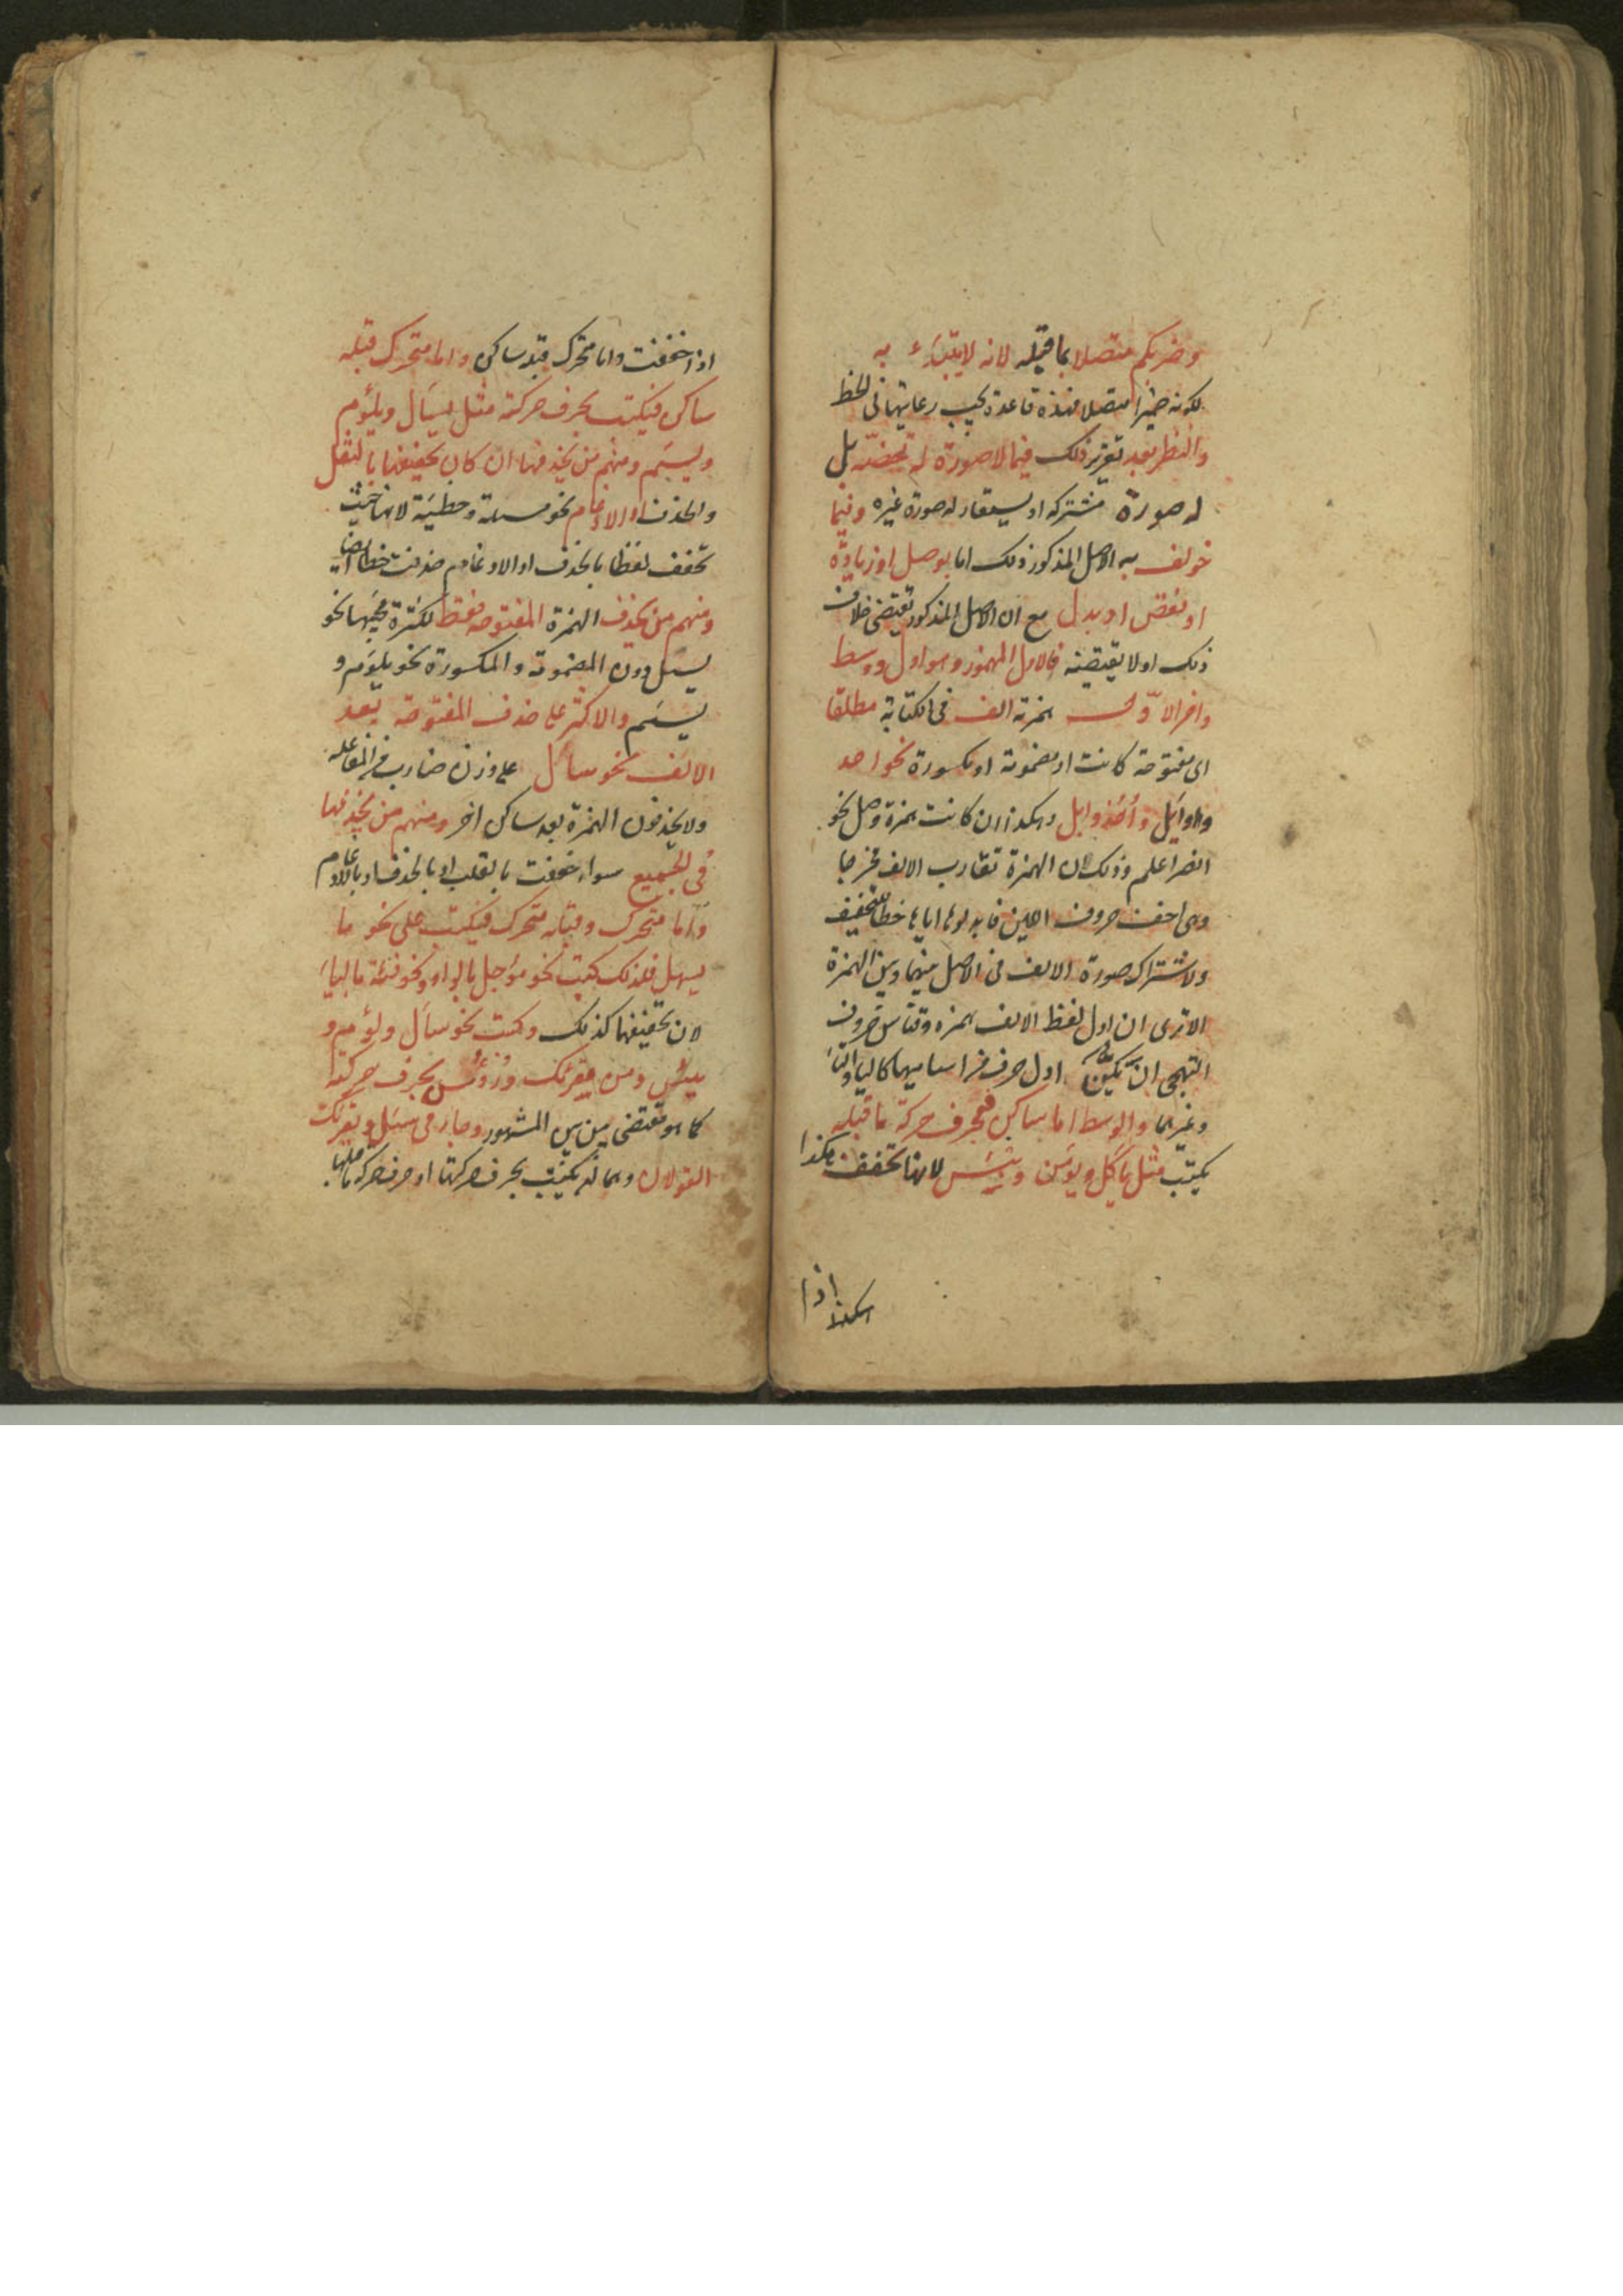 وضربكم متصلا بما قبله لانه لا يبتدء به
لكونه ضميرا متصلا فهذه قاعدة يجب رعايتها في الخط
والنظر بعد تقرير ذلك فيما لا صورة له تخصه بل
له صورة مشتركه او يستعار له صورة غيره وفيما
خولف به الاصل المذكور وذلك اما بوصل او زيادة
او نقص او بدل مع ان الاصل المذكور يقتضى خلاف
ذلك او لا يقتضيه فالاول المهموز وهو اول ووسط
واخر الاول همزته الف فى الكتابة مطلقا
اى مفتوحة كانت او مضمومة او مكسورة نحو احد
واوائل وأُخذ وابل وهكذا ان كانت همزة وصل نحو
انصر اعلم وذلك لان الهمزة تقارب الالف مخرجا
وهى اخف حروف اللين فابدلوها اياها خطا للتخفيف
ولاشتراك صورة الالف فى الاصل بينها وبين الهمزة
الا ترى ان اول لفظ الالف همزه وقياس حروف
التهجى ان يكون اول حرف من اساميها كالباء والتاء
وغيرهما والوسط اما ساكن فبحرف حركة ما قبله
يكتب مثل يأكل ويؤمن وبئس لانها تخفف هكذا
اذا
اسكنت
اذا خففت واما متحرك قبله ساكن واما متحرك قبله
ساكن فيكتب بحرف حركته مثل يسأل ويلؤم
ويسئم ومنهم من يحذفها ان كان تخفيفها بالنقل
والحذف او الادغام نحو مسلة وخطية لانها حيث
تخفف لفظا بالحذف او الادغام حذفت خطا ايضا
ومنهم من يحذف الهمزة المفتوحة فقط لكثرة مجيئها نحو
يسل دون المضمومة والمكسورة نحو يلؤم و
يسئم والاكثر على حذف المفتوحة بعد
الالف نحو ساءل على وزن ضارب من المفاعله
ولا يحذفون الهمزة بعد ساكن اخر ومنهم من يحذفها
فى الجميع سواء خففت بالقلب او بالحذف او بالادغام
واما متحرك وقبله متحرك فيكتب على نحو ما
يسهل فلذلك كتب نحو مؤجل بالواو ونحو فئة بالياء
لان تخفيفهما كذلك وكتب نحو سأل ولؤم و
يئس ومن مقرئك ورؤس بحرف حركته
كما هو مقتضى بين بين المشهور وجاء فى سئل ويقرئك
القولان وهما ان يكتب بحرف حركتها او حرف حركة ما قبلها